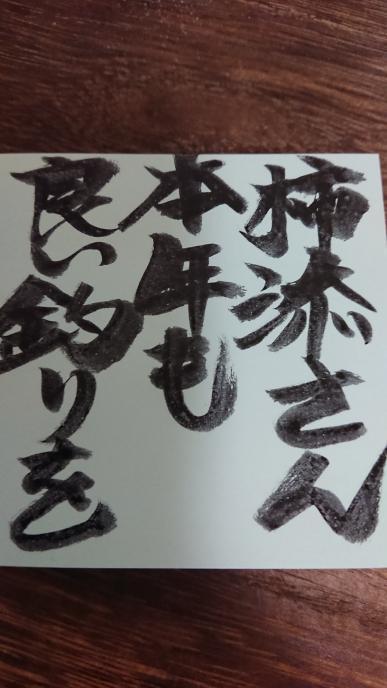 柿添さん
本年も
良い釣りを